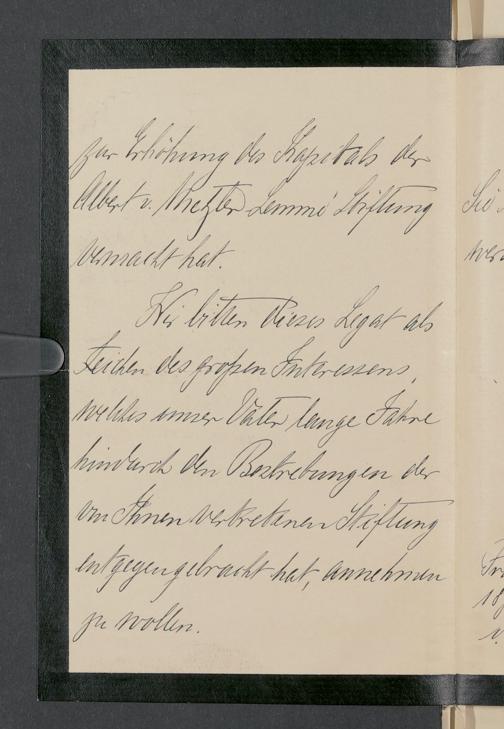 zur Erhöhung des Kapitals der
Albert v. Metzler Stiftung
vermacht hat.
Wir bitten dieses Legat als
Zeichen des großen Interessens,
welches unser Vater lange Jahre
hindurch den Bestrebungen der
von Ihnen vertretenen Stiftung
entgegengebracht hat, annehmen
zu wollen.